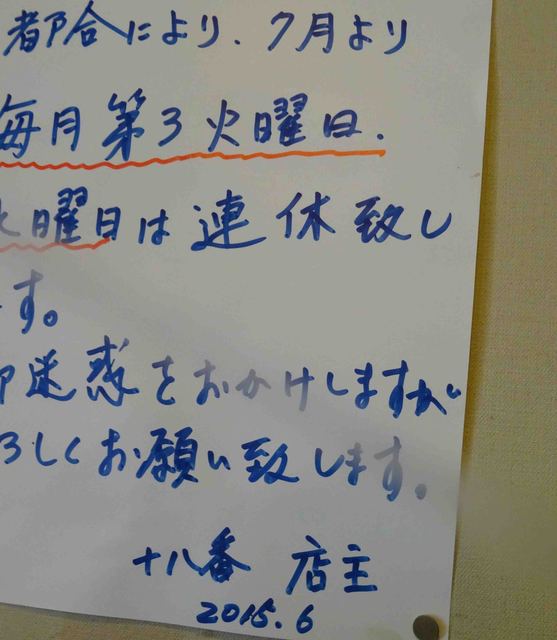 都合により、7月より
毎月第3火曜日.
曜日は連休致し
す。
迷惑をおかけしますが
ろしくお願い致します。
十八番 店主
2015.6